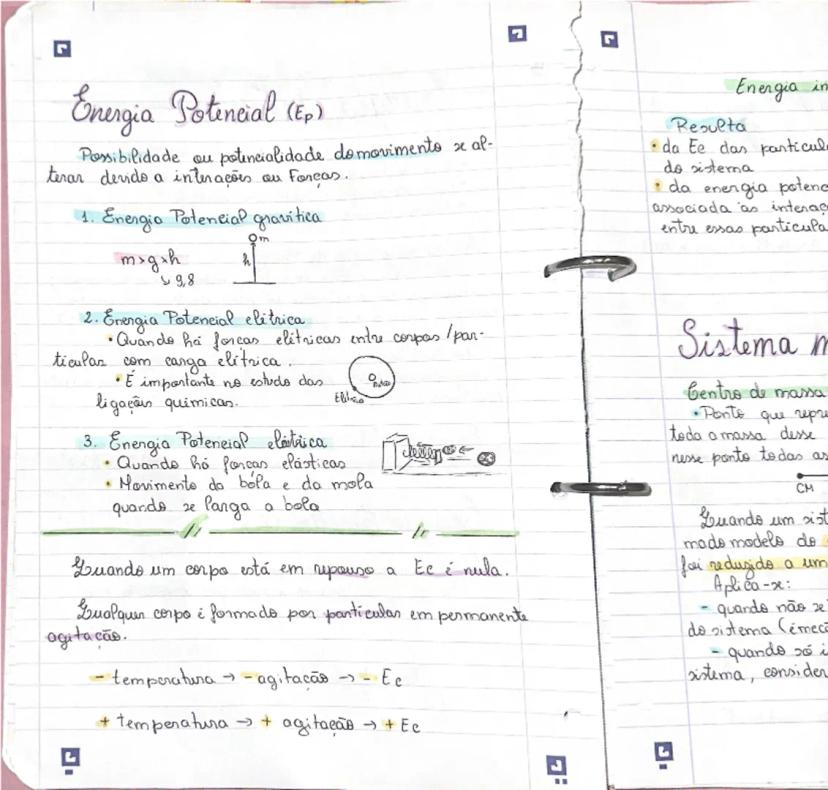 Energia Potencial (Ep)
Possibilidade ou potencialidade do movimento se al-
terar devido a interações ou Forças.
1. Energia Potencial gravítica
m×g×h
↳ 9,8
m
h
2. Energia Potencial elétrica
• Quando há forças elétricas entre corpos / par-
tículas com carga elétrica.
• É importante no estudo das
ligações químicas.
3. Energia Potencial elástica
• Quando há forças elásticas
• Movimento da bola e da mola
quando se larga a bola
Quando um corpo está em repouso a Ec é nula.
Qualquer corpo é formado por partículas em permanente
agitação.
- temperatura → - agitação → - Ec
+ temperatura → + agitação → + Ec
Energia in
Resulta
• da Ec das partícul
do sistema
• da energia potenc
associada às interaç
entre essas partícula
Sistema m
Centro de massa
• Ponto que repre
toda a massa desse
nesse ponto todas as
CM
Quando um sist
modo modelo do
foi reduzido a um
Aplica-se:
- quando não se
do sistema (émecâ
- quando só i
sistema, consider